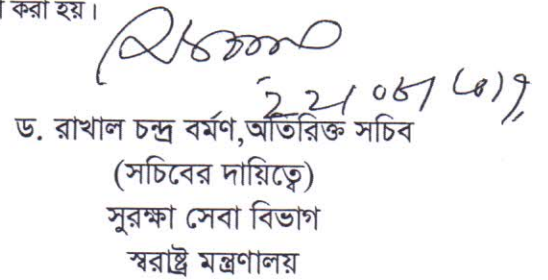 করা হয়।
ড. রাখাল চন্দ্র বর্মণ,অতিরিক্ত সচিব
(সচিবের দায়িত্বে)
সুরক্ষা সেবা বিভাগ
স্বরাষ্ট্র মন্ত্রণালয়